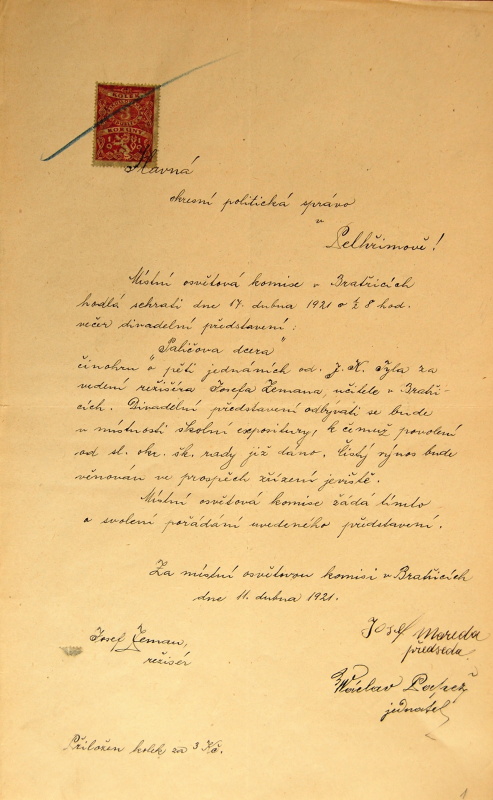 KOLEK
3
KORUNY
Slavná
okresní politická správo
v
Pelhřimově!
Místní osvětová komise v Bratřicích
hodlá sehrati dne 17. dubna 1921 o ½ 8 hod.
večer divadelní představení:
"Paličova dcera"
činohru o pěti jednáních od J. K. Tyla za
vedení režiséra Josefa Zemana, učitele v Bratři-
cích. Divadelní představení odbývati se bude
v místnosti školní expositury, k čemuž povolení
od sl. okr. šk. rady již dáno. Čistý výnos bude
věnován ve prospěch zřízení jeviště.
Místní osvětová komise žádá tímto
o svolení pořádání uvedeného představení.
Za místní osvětovou komisi v Bratřicích
dne 11. dubna 1921.
Josef Zeman,
režisér
Josef
předseda
Václav
jednatel
Přiložen kolek za 3 Kč.
1